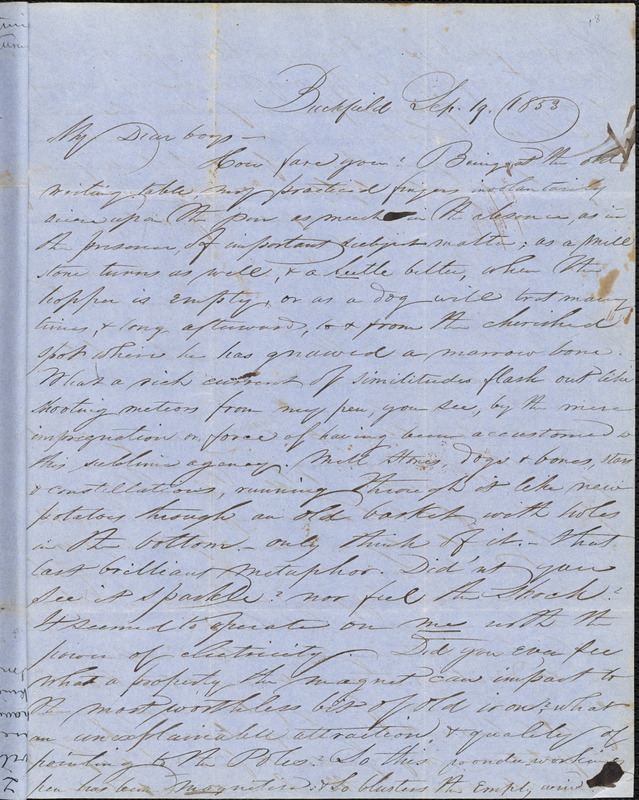 Buckfield Sep. 19. 1853
My Dear boys—
How fare you? Being at the old
writing table, my practiced fingers involuntarily
seize upon the pen as much in the absence, as in
the presence, of important subject matter; as a mill
stone turns as well, & a leetle better, when the
hopper is empty; or as a dog will trot many
times, & long afterward, to & from the cherished
spot where he has gnawed a marrow bone.
What a rich current of similitudes flash out like
shooting meteors from my pen, you see, by the mere
impregnation or force of having been accustomed to
this sublime agency. Mill stones, dogs & bones, stars
& constellations, running through it like new
potatoes through an old basket with holes
in the bottom— only think of it.— that
last brilliant metaphor. Did'nt you
see it sparkle? nor feel the shock?
It seemed to operate on me with the
power of electricity. Did you ever see
what a property the magnet can impart to
the most worthless bit of old iron? what
an unexplainable attraction, & quality of
pointing to the Poles? So this wonder working
pen has been magnetized. & so blusters the empty wind.